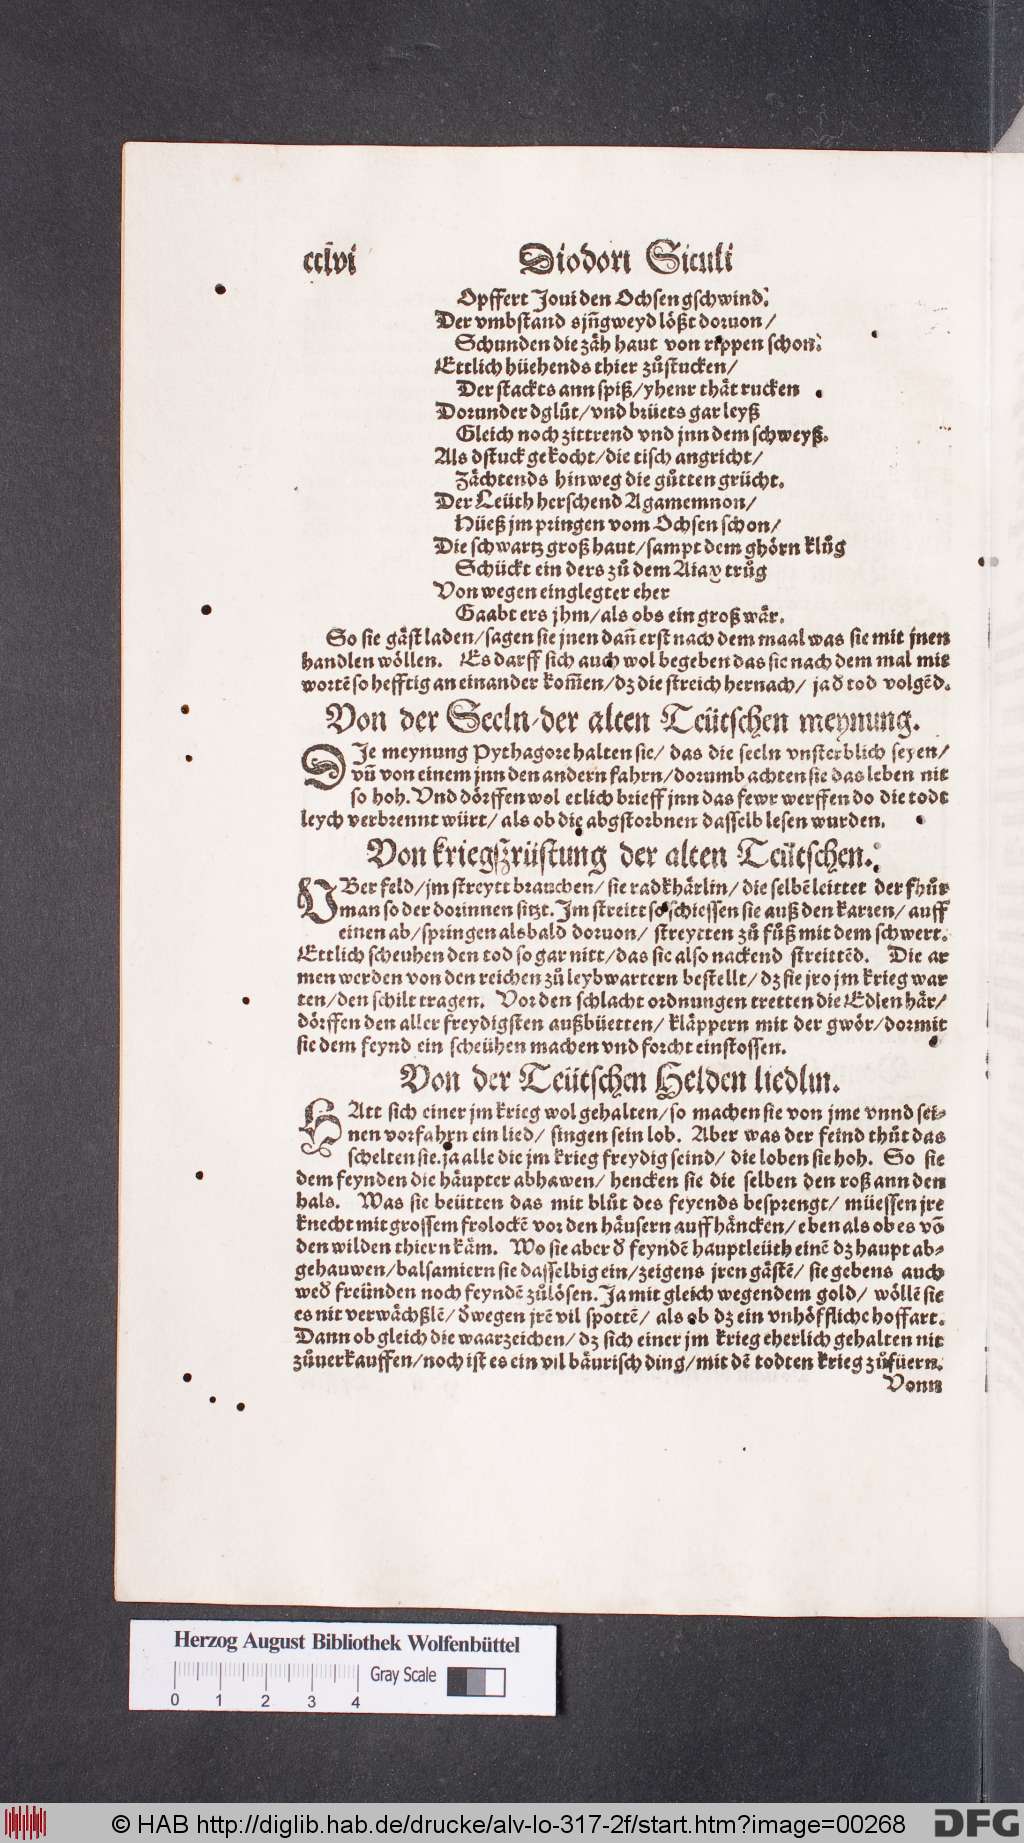 cclvi Diodori Siculi
Opffert Joui den Ochsen gschwind.
Der vmbstand sjñgweyd lößt doruon/
Schunden die zäh haut von rippen schon.
Ettlich hüehends thier zůstucken/
Der stackts ann spiß/yhenr thät rucken
Dorunder dglůt/vnd brüets gar leyß
Gleich noch zittrend vnd jnn dem schweyß.
Als dstuck gekocht/die tisch angricht/
Zächtends hinweg die gůtten grücht.
Der Leüth herschend Agamemnon/
Hüeß jm pringen vom Ochsen schon/
Die schwartz groß haut/sampt dem ghörn klůg
Schückt ein ders zů dem Aiax trůg
Von wegen einglegter eher
Gaabt ers jhm/als obs ein groß wär.
So sie gäst laden/sagen sie jnen dañ erst nach dem maal was sie mit jnen
handlen wöllen. Es darff sich auch wol begeben das sie nach dem mal mit
wortē so hefftig an einander kom̄en/dz die streich hernach/ ja đ tod volgēd.
Von der Seeln-der alten Teütschen meynung.
DJe meynung Pythagore halten sie/ das die seeln vnsterblich seyen/
vñ von einem jnn den andern fahrn/dorumb achten sie das leben nit
so hoh. Vnd dörffen wol etlich brieff jnn das fewr werffen do die todt
leych verbrennt würt/ als ob die abgstorbnen dasselb lesen wurden.
Von kriegßrüstung der alten Teütschen.
VBer feld/jm streytt brauchen/ sie radkhärlin/ die selbē leittet der fhůr
man so der dorinnen sitzt. Jm streitt so schiessen sie auß den karren/ auff
einen ab/springen alsbald doruon/ streytten zů fůß mit dem schwert.
Ettlich scheuhen den tod so gar nitt/das sie also nackend streittēd. Die ar
men werden von den reichen zů leybwartern bestellt/dz sie jro jm krieg war
ten/den schilt tragen. Vor den schlacht ordnungen tretten die Edlen här/
dörffen den aller freydigsten außbüetten/ kläppern mit der gwör/dormit
sie dem feynd ein scheühen machen vnd forcht einstossen.
Von der Teütschen Helden liedlin.
HAtt sich einer jm krieg wol gehalten/so machen sie von jme vnnd sei-
nen vorfahrn ein lied/ singen sein lob. Aber was der feind thůt das
schelten sie. ja alle die jm krieg freydig seind/ die loben sie hoh. So sie
dem feynden die häupter abhawen/ hencken sie die selben den roß ann den
hals. Was sie beütten das mit blůt des feyends besprengt/ müessen jre
knecht mit grossem frolockē vor den häusern auff häncken/ eben als ob es vō
den wilden thiern käm. Wo sie aber đ feyndē hauptleüth einē dz haupt ab-
gehauwen/balsamiern sie dasselbig ein/zeigens jren gästē/ sie gebens auch
weđ freünden noch feyndē zůlösen. Ja mit gleich wegendem gold/ wöllē sie
es nit verwächßlē/ đwegen jrē vil spottē/ als ob dz ein vnhöffliche hoffart.
Dann ob gleich die waarzeichen/ dz sich einer jm krieg eherlich gehalten nit
zůuerkauffen/noch ist es ein vil bäurisch ding/mit dē todten krieg zůfüern.
Vonn
Herzog August Bibliothek Wolfenbüttel
Gray Scale
0 1 2 3 4
© HAB http://diglib.hab.de/drucke/alv-lo-317-2f/start.htm?image=00268
DFG